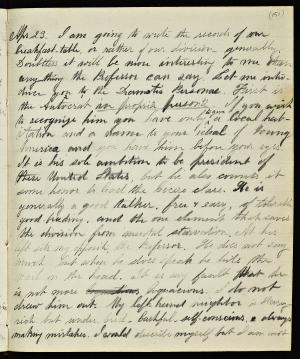 (151)
Apr 23. I am going to write the record of our
breakfast table or rather of our division generally.
Doubtless it will be more interesting to me than
anything the Professor can say. Let me intro-
duce you to the Dramatis Personae. First is
the Autocrat in propria persona. If you wish
to recognize him you have only a local
and a to your ideal of Young
America and you have him before your eyes.
It is his sole ambition to be president of
these United States, but he also counts it
some honor to lead the class. He is
generally a good talker, free & easy, of tolerable
good breeding, and the one element that saves
the division from mental starvation. At his
left sits my opposite, the Professor. He does not say
much but when he does speak he hits the
nail on the head. It is my fault that he
is not more loquacious. I do not
draw him out. My left hand neighbor is
rich but under bred, bashful, self conscious, & always
making mistakes. I would myself but I am not